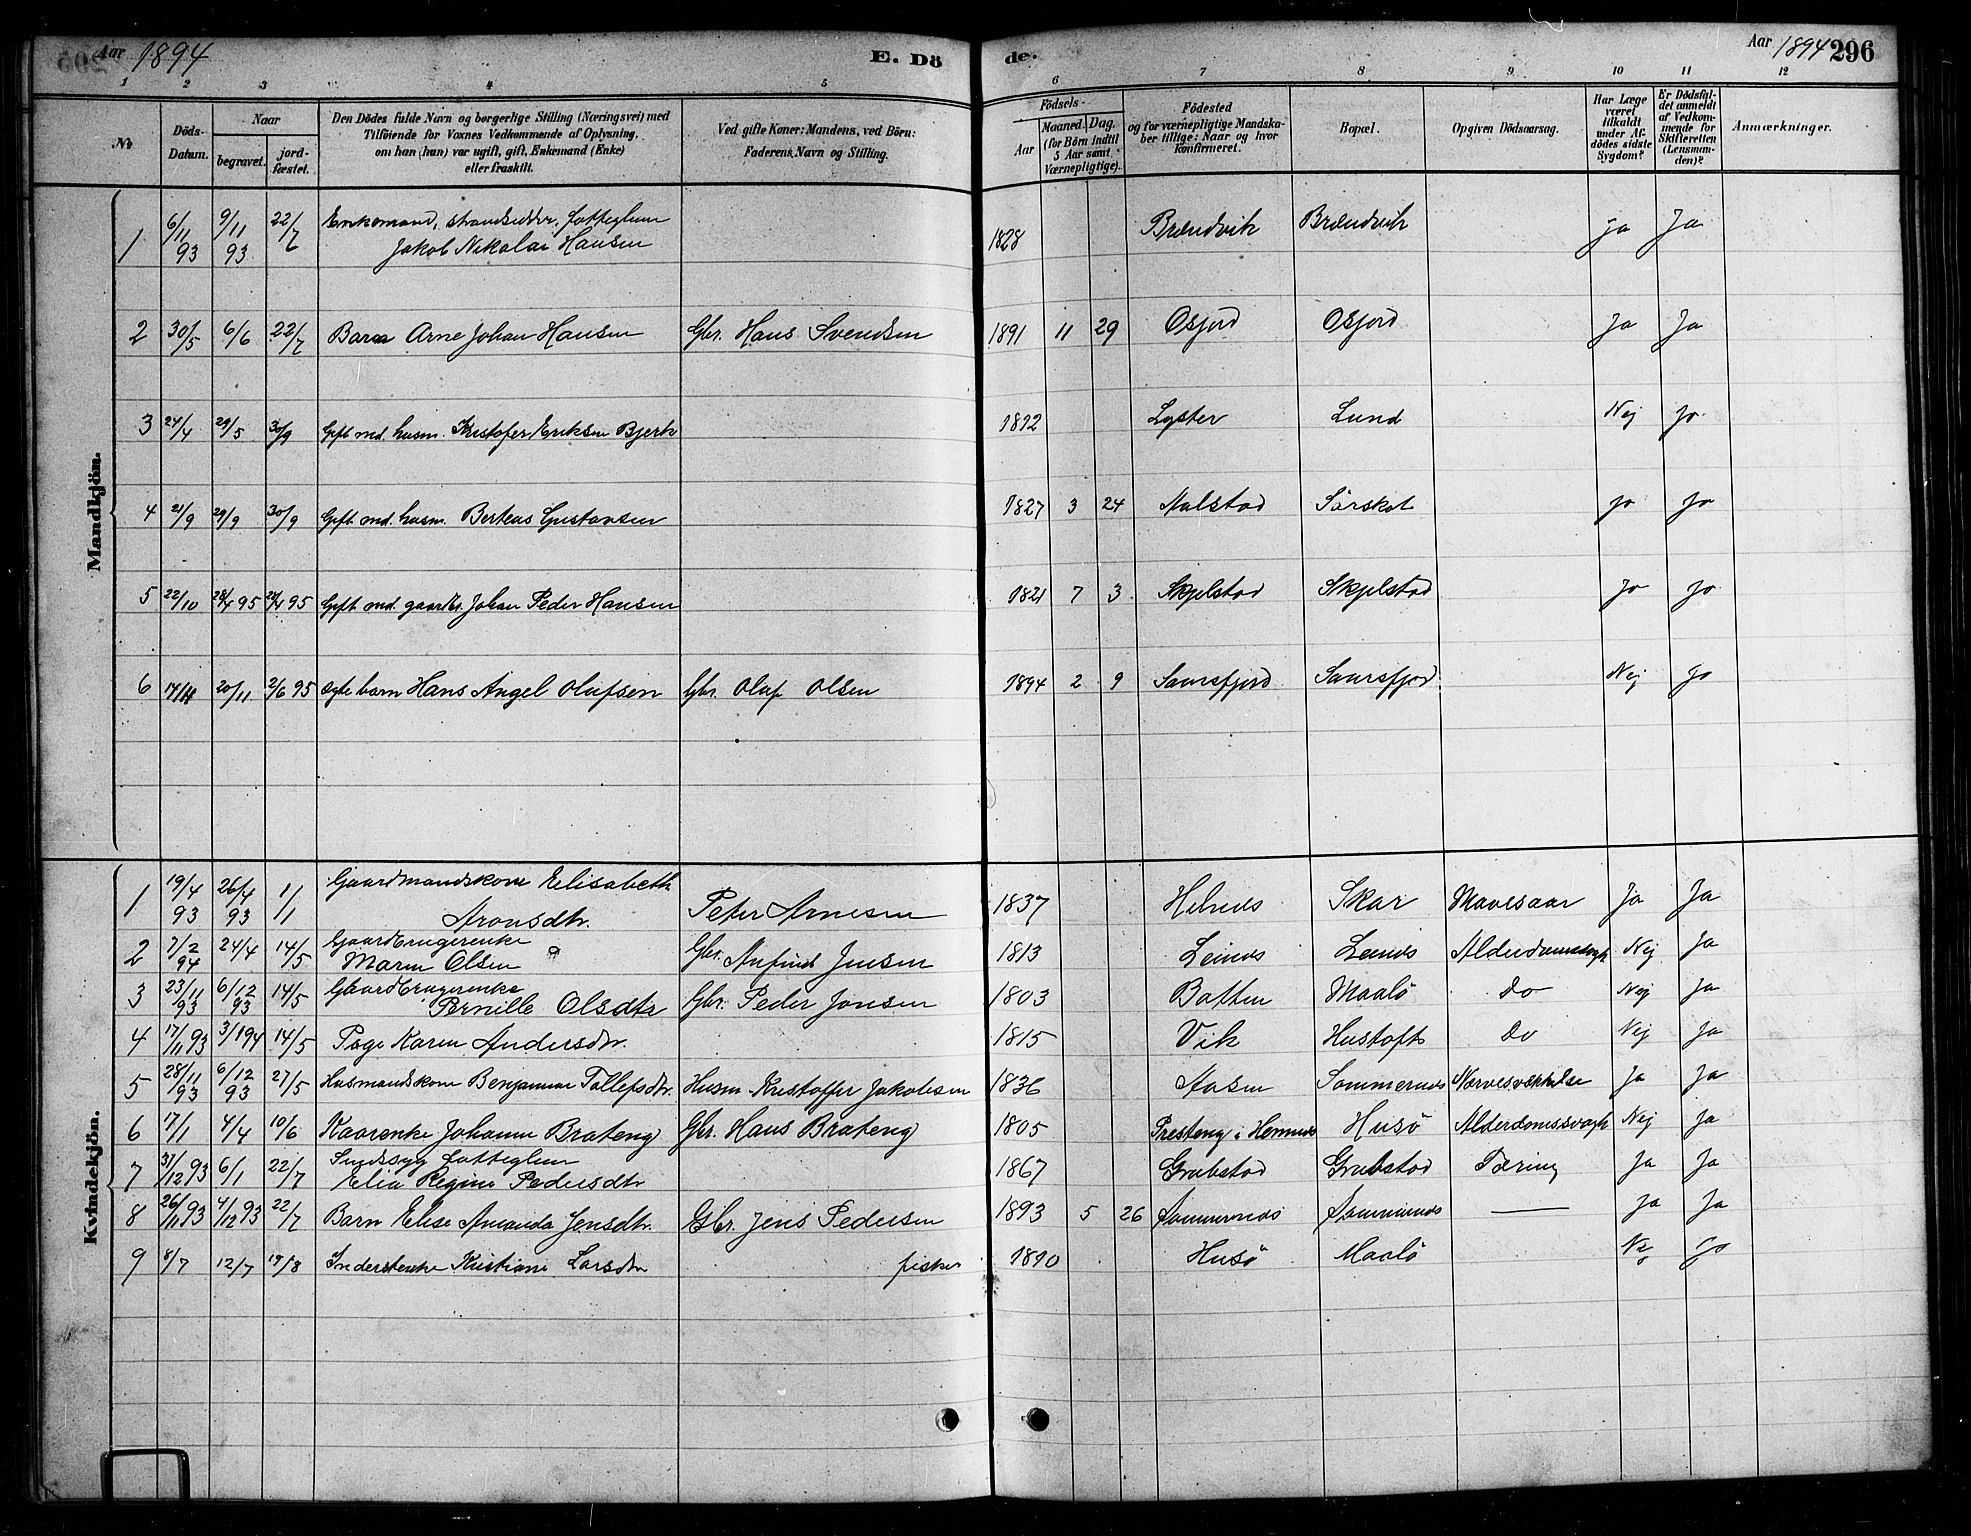 Aar 1894
E. Dö
de.
Aar 1894 296
1 2 3 4 5 6 7 8 9 10 11 12
№
Döds-Datum.
Naar
begravet.
jord-fæstet.
Den Dödes fulde Navn og borgerlige Stilling (Næringsvei) med
Tilföiende for Voxnes Vedkommende af Oplysning,
om han (hun) var ugift, gift, Enkemand (Enke)
eller fraskilt.
Ved gifte Koner: Mandens, ved Börn:
Faderens, Navn og Stilling.
Födsels-
Aar
Maaned. Dag.
(for Börn indtil
5 Aar samt
Værnepligtige).
Födested
og for værnepligtige Mandska-
ber tillige: Naar og hvor
konfirmeret.
Bopæl.
Opgiven Dödsaarsag.
Har Læge
været
tilkaldt
under Af-
dödes sidste
Sygdom?
Er Dödsfal-
det anmeldt
af Vedkom-
mende for
Skifteretten
(Lensman-
den)?
Anmærkninger.
Mandkjön.
1 6/11 93 9/11 93 22/7 Enkemand, strandsidder, fatteglem
Jakob Nikolai Hansen 1828 Brændvik Brændvik Ja Ja
2 30/5 6/6 22/7 Barn Arne Johan Hansen Gbr. Hans Svendsen 1891 11 29 Osfjord Osfjord Ja Ja
3 24/4 29/5 30/9 Gift md. husm. Kristofer Eriksen Bjerk 1812 Lyster Lund Nej Jo
4 21/9 29/9 30/9 Gift md. husm. Berteus Gustavsen 1827 3 24 Aalstad Sörskot Jo Jo
5 22/10 28/4 95 28/4 95 Gift md. gaardbr. Johan Peder Hansen 1821 7 3 Skjelstad Skjelstad Jo Jo
6 14/11 20/11 2/6 95 Ægte barn Hans Angel Olufsen Gbr. Oluf Olsen 1894 2 9 Saursfjord Saursfjord Nej Jo
Kvindekjön.
1 19/4 93 26/4 93 1/1 Gaardmandskone Elisabeth
Aronsdtr. Peter Arnesen 1837 Helnes Skar Mavesaar Ja Ja
2 7/2 94 24/4 14/5 Gaardbrugerenke
Maren Olsen Gbr. Anfind Jensen 1813 Leines Leines Alderdomssvagh. Nej Ja
3 23/11 93 6/12 93 14/5 Gaardbrugerenke
Pernille Olsdtr Gbr. Peder Jonsen 1803 Batten Maalö Do Nej Ja
4 17/11 93 3/1 94 14/5 Pige Karen Andersdtr. 1815 Vik Hustoft Do Nej Ja
5 28/11 93 6/12 93 27/5 Husmandskone Benjamine Tollefsdtr. Husm. Kristoffer Jakobsen 1836 Aasen Sommernes Nervesvækkelse Ja Ja
6 17/1 4/4 10/6 Kaarenke Johanna Brateng Gbr. Hans Brateng 1805 Presteng i Hemnes Husö Alderdomssvagh Nej Ja
7 31/12 93 6/1 22/7 Sindssyg fatteglem
Elia Regine Pedersdtr 1867 Grubstad Grubstad Tæring Ja Ja
8 26/11 93 4/12 93 22/7 Barn Elise Amanda Jensdtr. Gbr. Jens Pedersen 1893 5 26 Sommernes Sommernes — Ja Ja
9 8/7 12/7 19/8 Inderstenke Kristiane Larsdtr fisker 1810 Husö Maalö Nej Jo